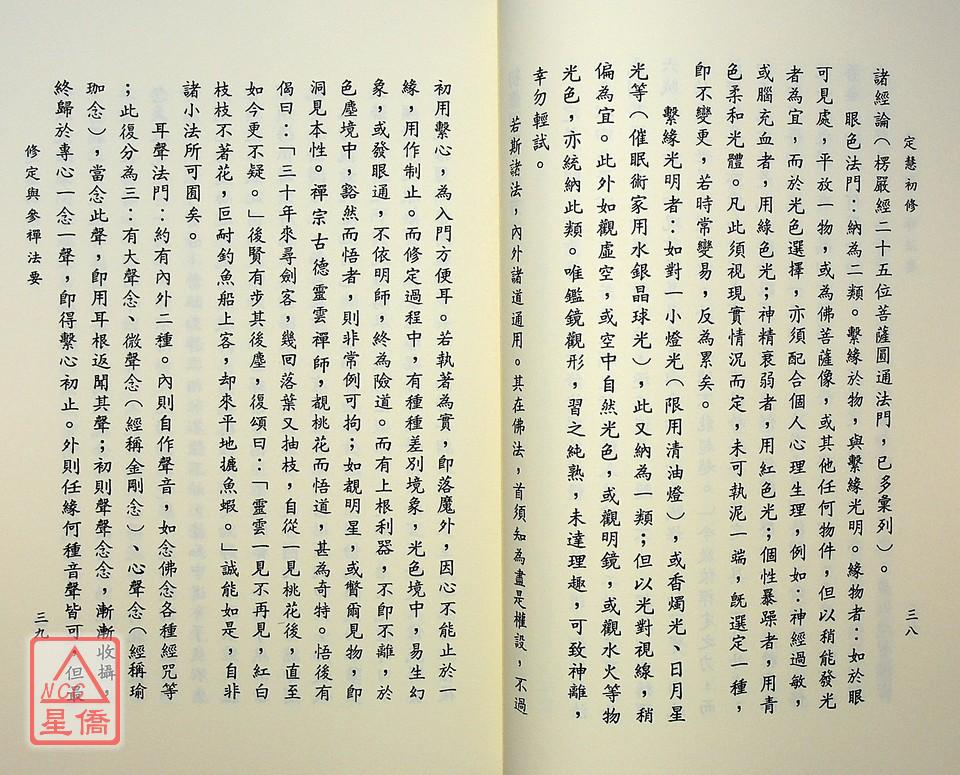 定慧初修
三八
諸經論（楞嚴經二十五位菩薩圓通法門，已多彙列）。
眼色法門：納為二類。繫緣於物，與繫緣光明。緣物者：如於眼
可見處，平放一物，或為佛菩薩像，或其他任何物件，但以稍能發光
者為宜，而於光色選擇，亦須配合個人心理生理，例如：神經過敏，
或腦充血者，用綠色光；神精衰弱者，用紅色光；個性暴躁者，用青
色柔和光體。凡此須視現實情況而定，未可執泥一端，既選定一種，
即不變更，若時常變易，反為累矣。
繫緣光明者：如對一小燈光（限用清油燈），或香燭光、日月星
光等（催眠術家用水銀晶球光），此又納為一類；但以光對視線，稍
偏為宜。此外如觀虛空，或空中自然光色，或觀明鏡，或觀水火等物
光色，亦統納此類。唯鑑鏡觀形，習之純熟，未達理趣，可致神離，
幸勿輕試。
若斯諸法，內外諸道通用。其在佛法，首須知為盡是權設，不過
初用繫心，為入門方便耳。若執著為實，即落魔外，因心不能止於一
緣，用作制止。而修定過程中，有種種差別境象，光色境中，易生幻
象，或發眼通，不依明師，終為險道。而有上根利器，不即不離，於
色塵境中，豁然而悟者，則非常例可拘；如覩明星，或瞥爾見物，即
洞見本性。禪宗古德靈雲禪師，覩桃花而悟道，甚為奇特。悟後有
偈曰：「三十年來尋劍客，幾回落葉又抽枝，自從一見桃花後，直至
如今更不疑。」後賢有步其後塵，復頌曰：「靈雲一見不再見，紅白
枝枝不著花，叵耐釣魚船上客，却來平地摝魚蝦。」誠能如是，自非
諸小法所可囿矣。
耳聲法門：約有內外二種。內則自作聲音，如念佛念各種經咒等
；此復分為三：有大聲念、微聲念（經稱金剛念）、心聲念（經稱瑜
珈念），當念此聲，即用耳根返聞其聲；初則聲聲念念，漸漸收攝，
終歸於專心一念一聲，即得繫心初止。外則任緣何種音聲皆可，但最
修定與參禪法要
三九
NCC
星僑